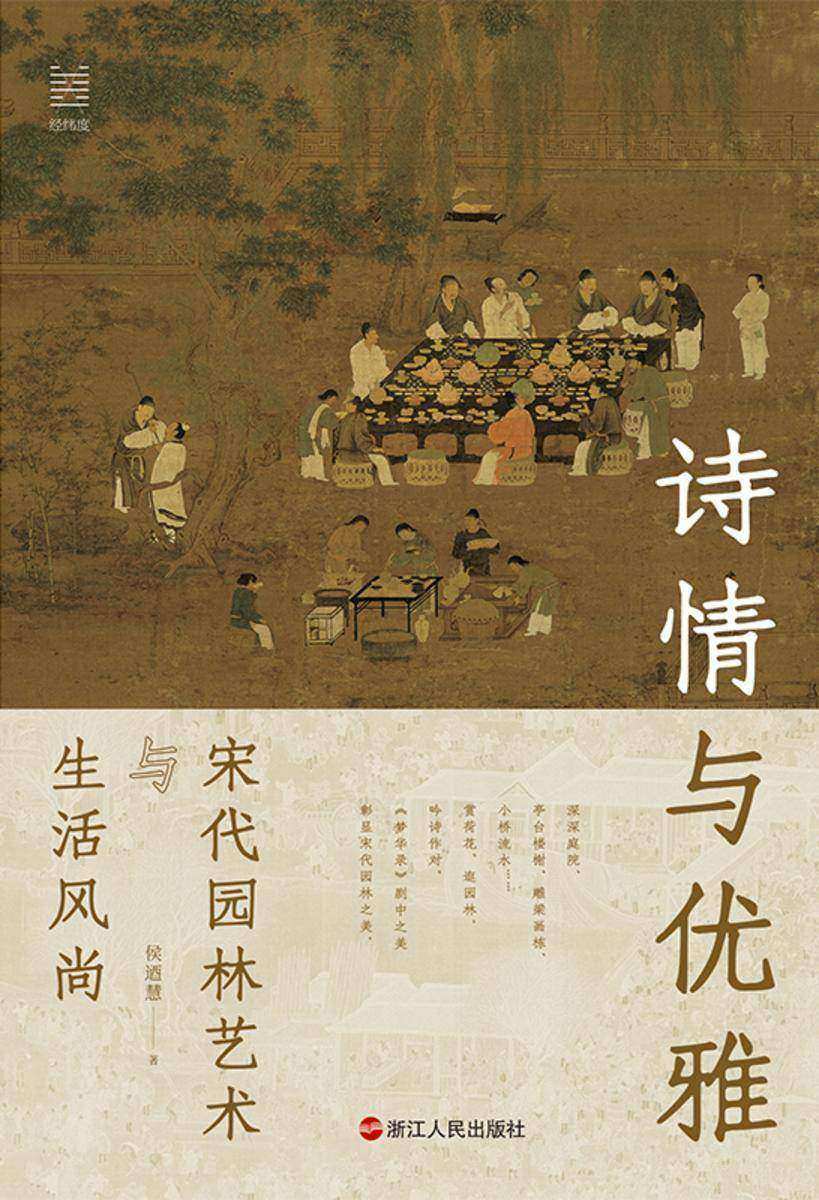 经纬度
诗情与优雅
深深庭院、
亭台楼榭、雕梁画栋、
小桥流水……
赏荷花、逛园林、
吟诗作对、
《梦华录》剧中之美
彰显宋代园林之美、
宋代园林艺术
与
生活风尚
侯迺慧
著
浙江人民出版社